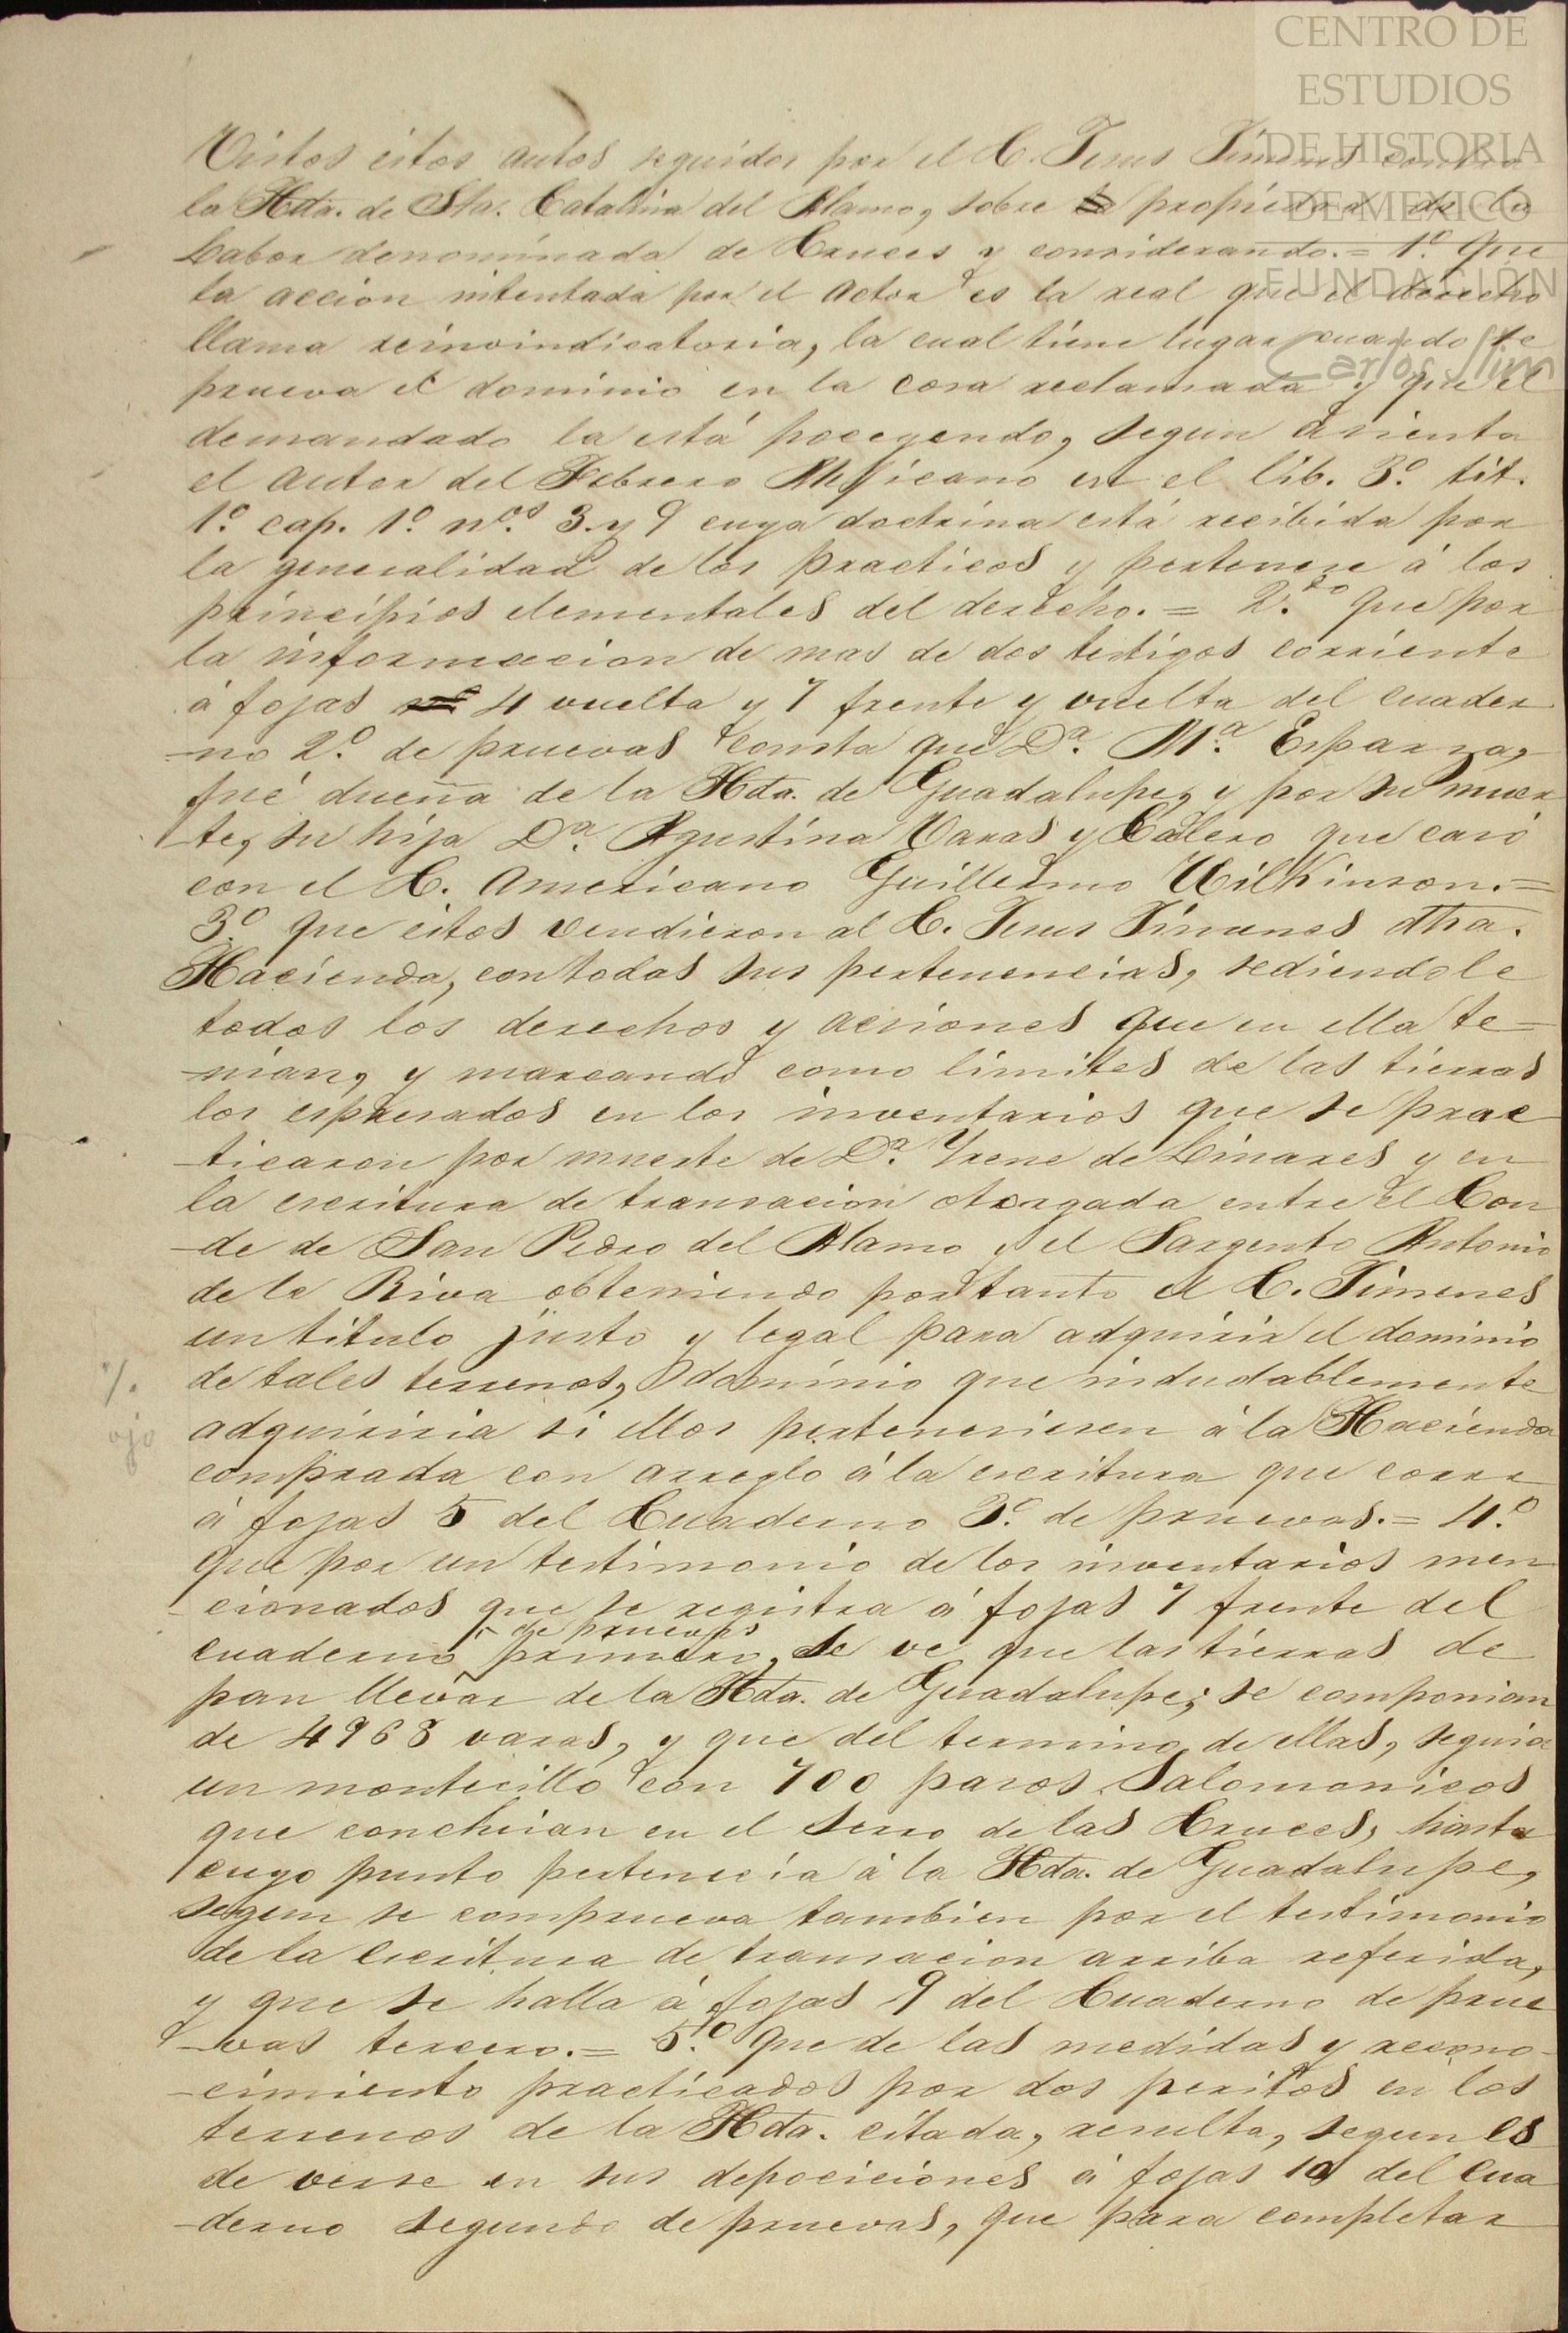 CENTRO DE
ESTUDIOS
DE HISTORIA
DE MEXICO
FUNDACIÓN
Carlos Slim
Vistos estos autos seguidos por el C. Jesus Jimenes contra
la Hda. de Sta. Catalina del Alamo, sobre propiedad de la
Labor denominada de Cruces y considerando. = 1º. Que
la accion intentada por el actor es la real que el derecho
llama reinvindicatoria, la cual tiene lugar cuando se
prueva el dominio en la cosa reclamada y que el
demandado la está poceyendo, segun asienta
el autor del Febrero Mejicano en el lib. 3º. tit.
1º. cap. 1º. nos. 3. y 9 cuya doctrina está recibida por
la generalidad de los practicos y pertenese á los
principios elementales del derecho. = 2.do Que por
la informacion de mas de dos testigos corriente
á fojas 4 vuelta y 7 frente y vuelta del cuader
-no 2º. de pruevas consta que Da. Ma. Esparza,
fué dueña de la Hda. de Guadalupe, y por su muer
-te, su hija Da. Agustina Varas y Calero que casó
con el C. Americano Guillermo Wilkinson. =
3º. Que estos vendieron al C. Jesus Jimenes dha.
Hacienda, con todas sus pertenencias, sediendole
todos los derechos y acsiones que en ella te=
-nian, y marcando como limites de las tierras
los espresados en los inventarios que se prac
-ticaron por muerte de Da. Yrene de Linares y en
la escritura de transacion otorgada entre el Con
-de de San Pedro del Alamo y el Sargento Antonio
de la Riva obteniendo por tanto el C. Jimenes
un titulo justo y legal para adquirir el dominio
de tales terrenos, dominio que indudablemente
ojo
adquiriria si ellos pertenesiesen á la Hacienda
comprada con arreglo á la escritura que corre
á fojas 5 del Cuaderno 3º. de pruevas. = 4.º
Que por un testimonio de los inventarios men
-cionados que se registra á fojas 7 frente del
de pruevas
cuaderno primero, se ve que las tierras de
pan llevar de la Hda. de Guadalupe; se componian
de 4968 varas, y que del termino de ellas, seguia
un montecillo con 700 pasos Salomonicos
que concluian en el serro de las Cruces, hasta
cuyo punto pertenecia á la Hda. de Guadalupe,
segun se comprueva tambien por el testimonio
de la escritura de transacion arriba referida,
y que se halla á fojas 9 del Cuaderno de prue
-vas tercero. = 5.º Que de las medidas y recono-
-cimiento practicados por dos peritos en los
terrenos de la Hda. citada, resulta, segun es
de verse en sus depociciones á fojas 10 del cua
-derno segundo de pruevas, que para completar